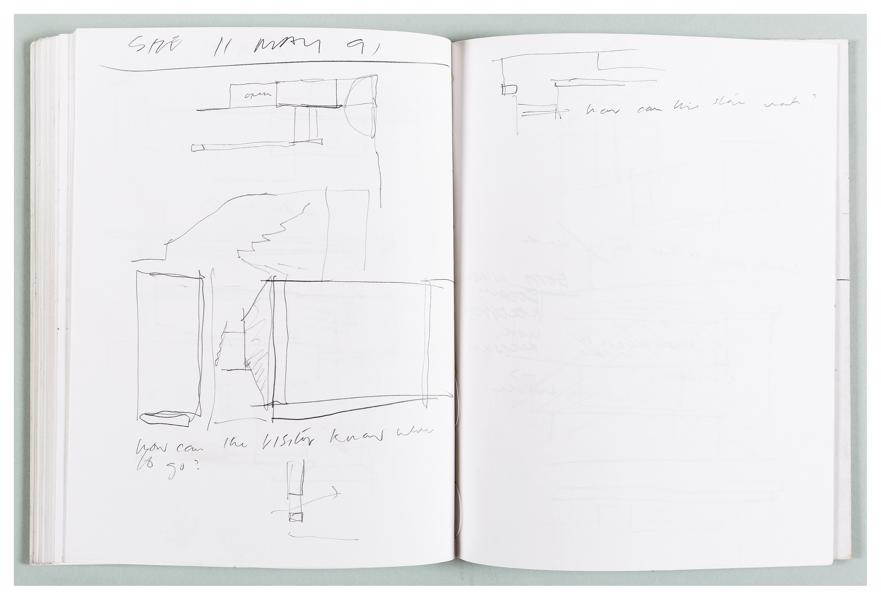 SITE 11 MAY 91
open
how can the visitor know where
to go?
how can this stair work?